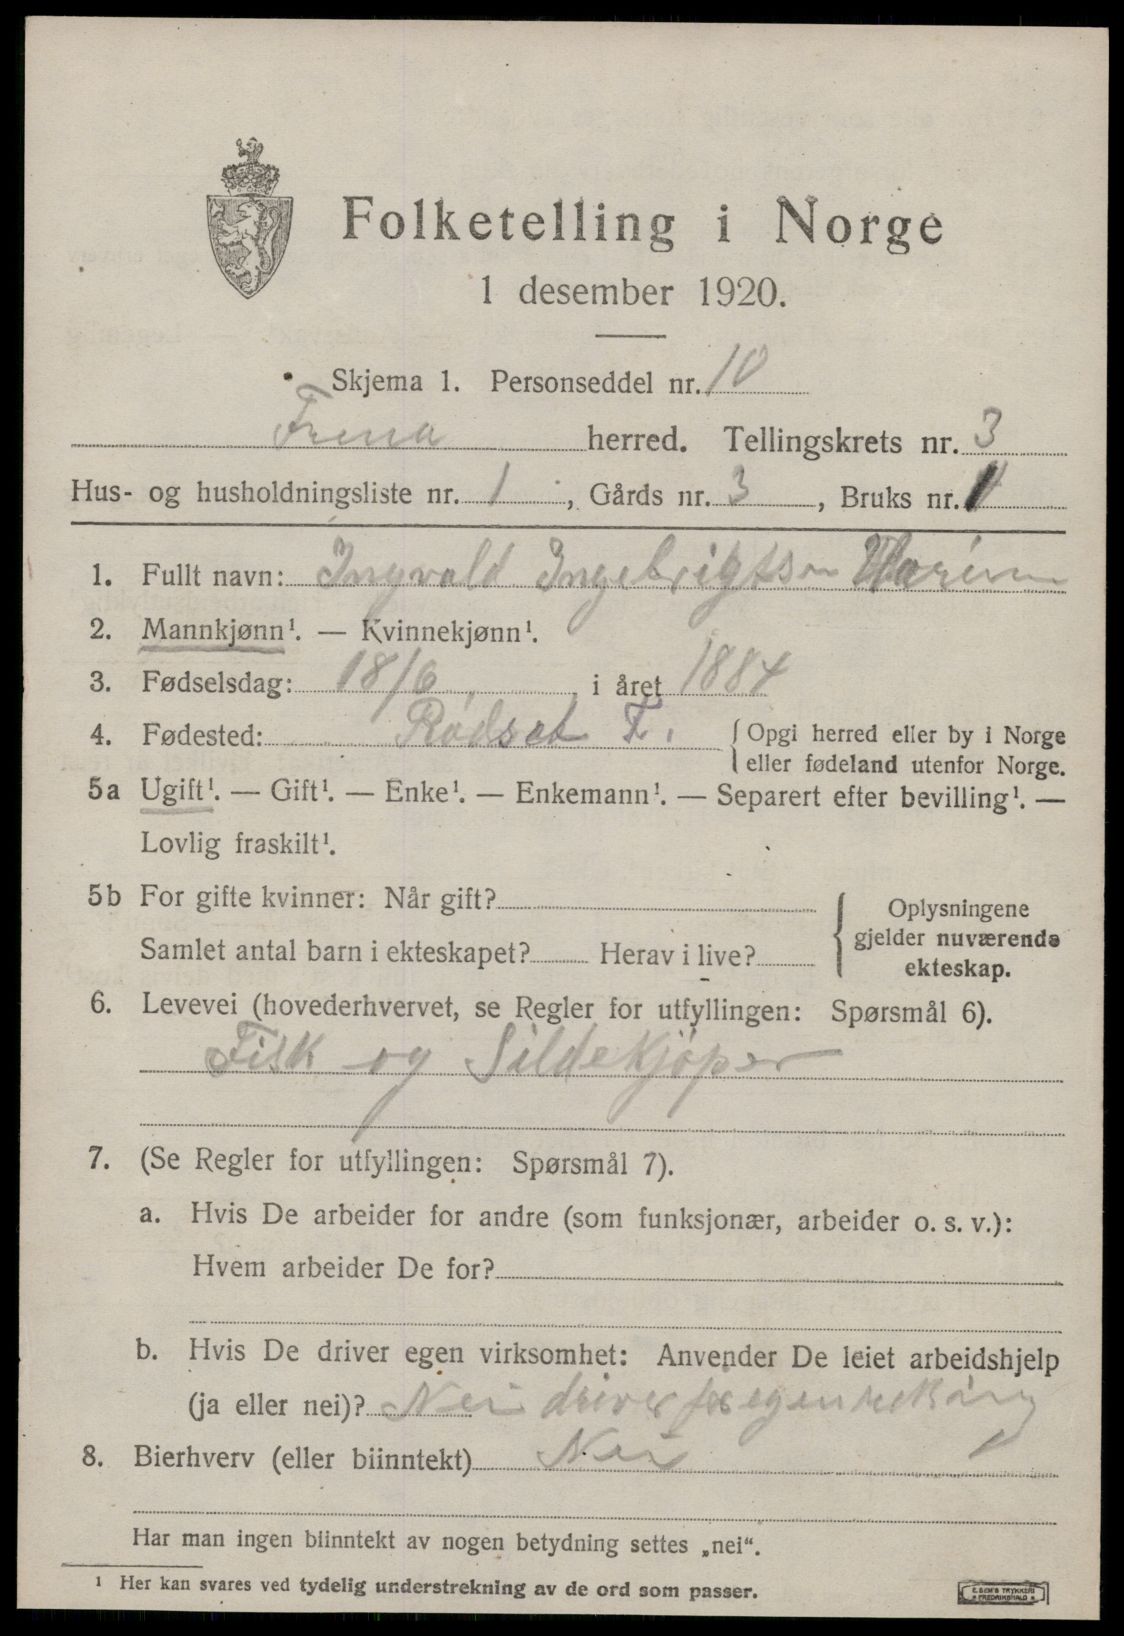 Folketelling i Norge
1 desember 1920.
Skjema 1. Personseddel nr. 10
Frena herred. Tellingskrets nr. 3
Hus- og husholdningsliste nr. 1, Gårds nr. 3, Bruks nr. 1
1. Fullt navn: Ingvald Ingebrigtsen
2. Mannkjønn¹. — Kvinnekjønn¹.
3. Fødselsdag: 18/6 i året 1884
4. Fødested: Rødset F. { Opgi herred eller by i Norge
eller fødeland utenfor Norge.
5a Ugift¹. — Gift¹. — Enke¹. — Enkemann¹. — Separert efter bevilling¹. —
Lovlig fraskilt¹.
5b For gifte kvinner: Når gift?
Samlet antal barn i ekteskapet? Herav i live?
{ Oplysningene
gjelder nuværende
ekteskap.
6. Levevei (hovederhvervet, se Regler for utfyllingen: Spørsmål 6).
Fisk og Sildekjøper
7. (Se Regler for utfyllingen: Spørsmål 7).
a. Hvis De arbeider for andre (som funksjonær, arbeider o. s. v.):
Hvem arbeider De for?
b. Hvis De driver egen virksomhet: Anvender De leiet arbeidshjelp
(ja eller nei)? Nei driver for egen rekning
8. Bierhverv (eller biinntekt) Nei
Har man ingen biinntekt av nogen betydning settes „nei".
¹ Her kan svares ved tydelig understrekning av de ord som passer.
E. SEM'S TRYKKERI
FREDRIKSHALD